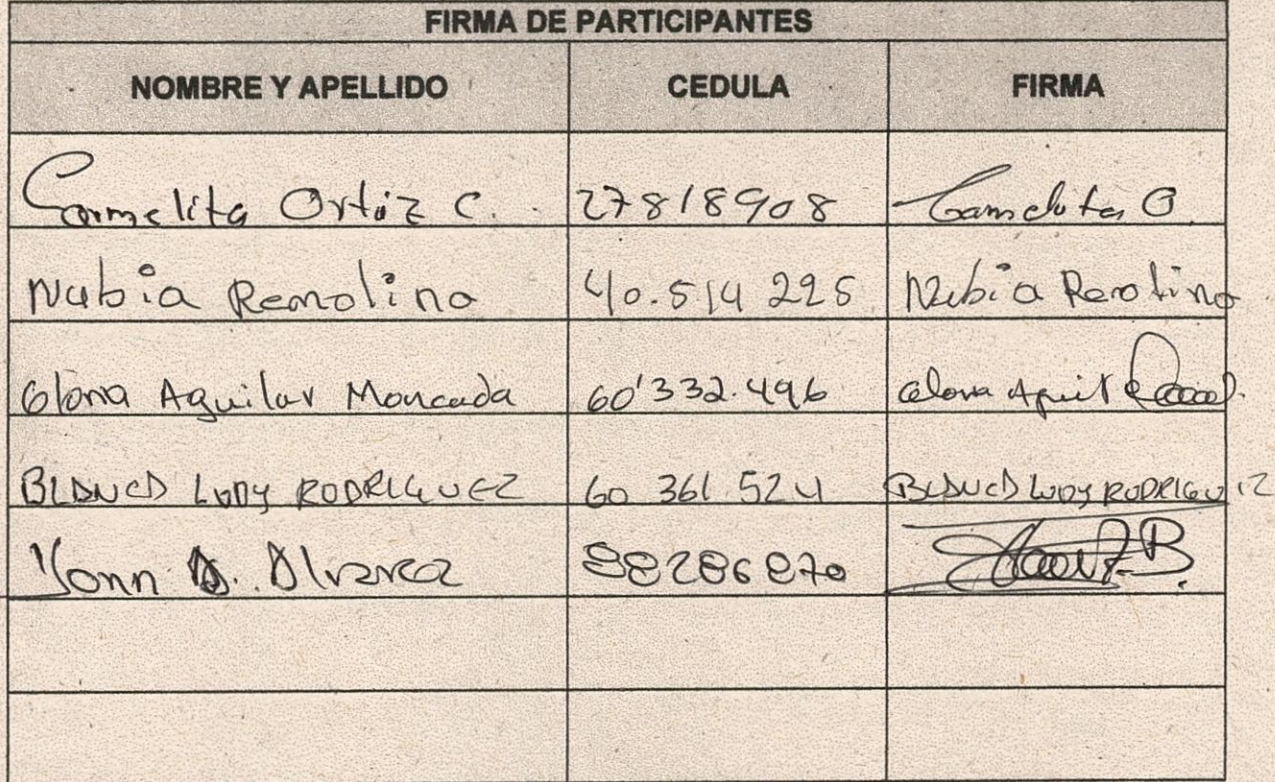 FIRMA DE PARTICIPANTES
NOMBRE Y APELLIDO CEDULA FIRMA
Carmelita Ortiz C. 27818908 Carmelita O.
Nubia Remolina 40.514 225 Nubia Remolina
Gloria Aguilar Moncada 60'332.496 Gloria Aguil
BLANCA LUDY RODRIGUEZ 60 361 524 BLANCA LUDY RODRIGUEZ
Alvarez 88286870